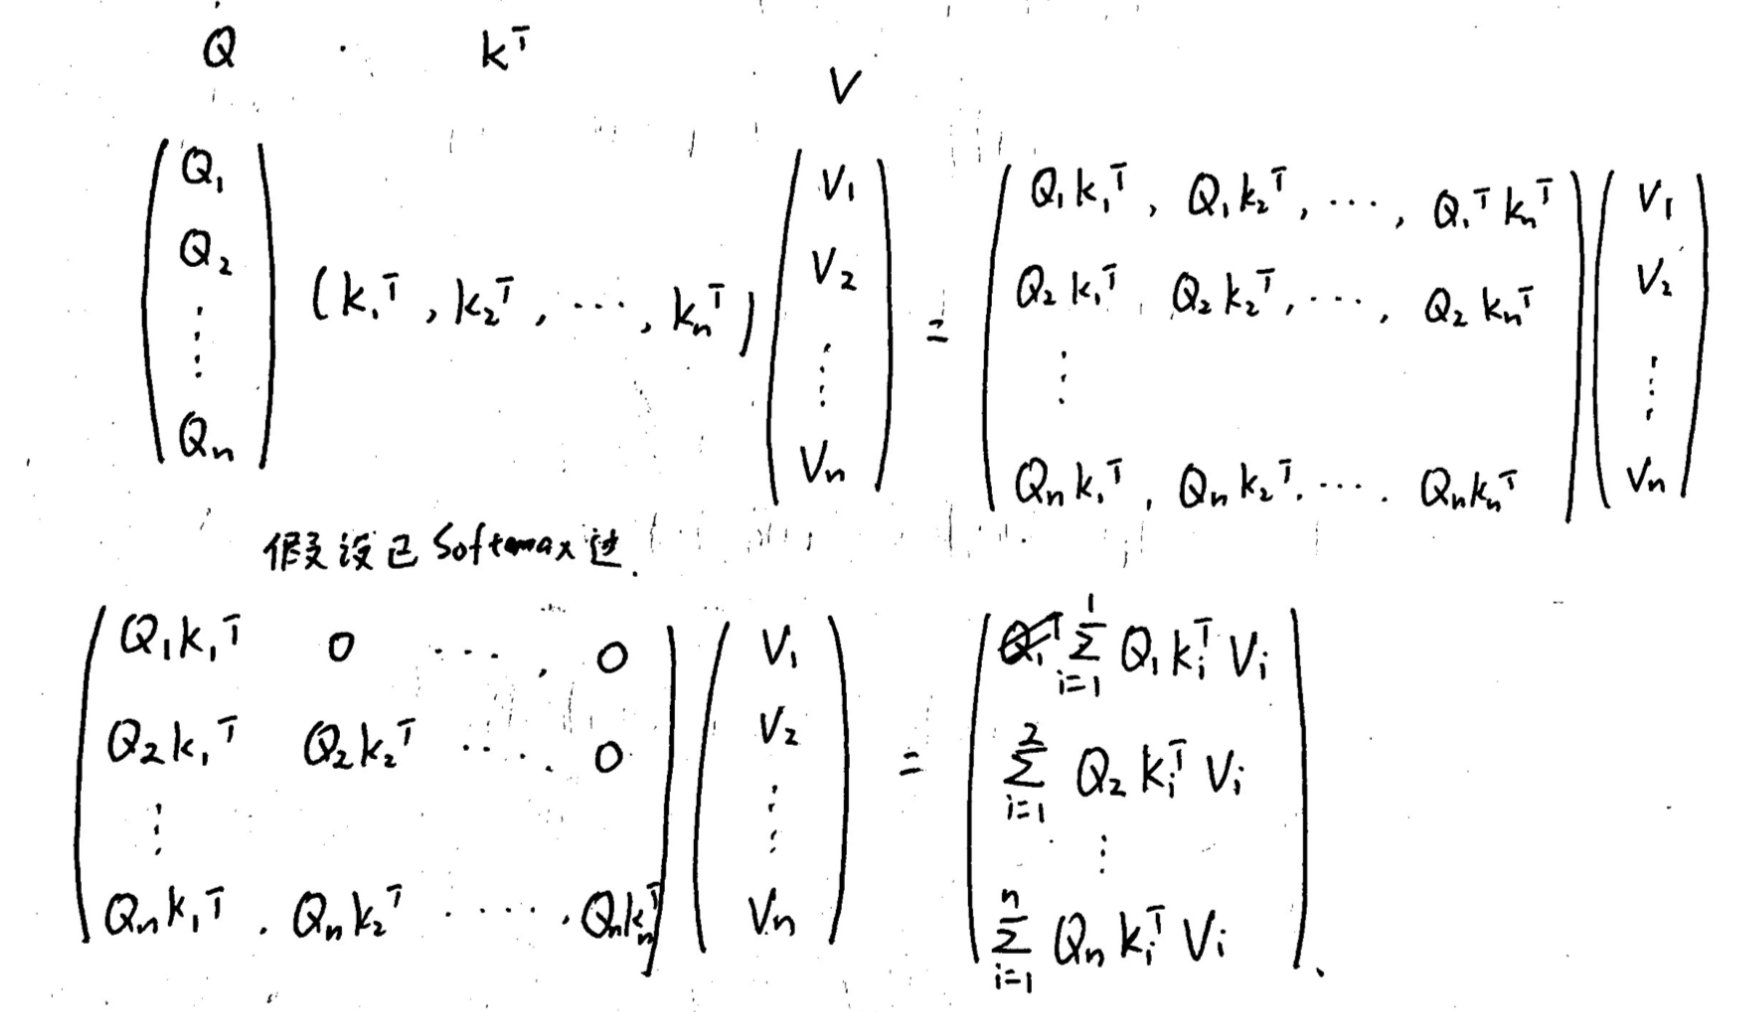 Q · K^T V
(Q₁ Q₂ ⋮ Qₙ) (k₁^T, k₂^T, ⋯, kₙ^T) (V₁ V₂ ⋮ Vₙ) = (Q₁k₁^T, Q₁k₂^T, ⋯, Q₁^T kₙ^T
Q₂k₁^T, Q₂k₂^T, ⋯, Q₂kₙ^T
⋮
Qₙk₁^T, Qₙk₂^T, ⋯, Qₙkₙ^T) (V₁ V₂ ⋮ Vₙ)
假设已 Softmax 过.
(Q₁k₁^T 0 ⋯ 0
Q₂k₁^T Q₂k₂^T ⋯ 0
⋮
Qₙk₁^T, Qₙk₂^T ⋯ Qₙkₙ^T) (V₁ V₂ ⋮ Vₙ) = (∑_{i=1}^{1} Q₁kᵢ^T Vᵢ
∑_{i=1}^{2} Q₂kᵢ^T Vᵢ
⋮
∑_{i=1}^{n} Qₙkᵢ^T Vᵢ).